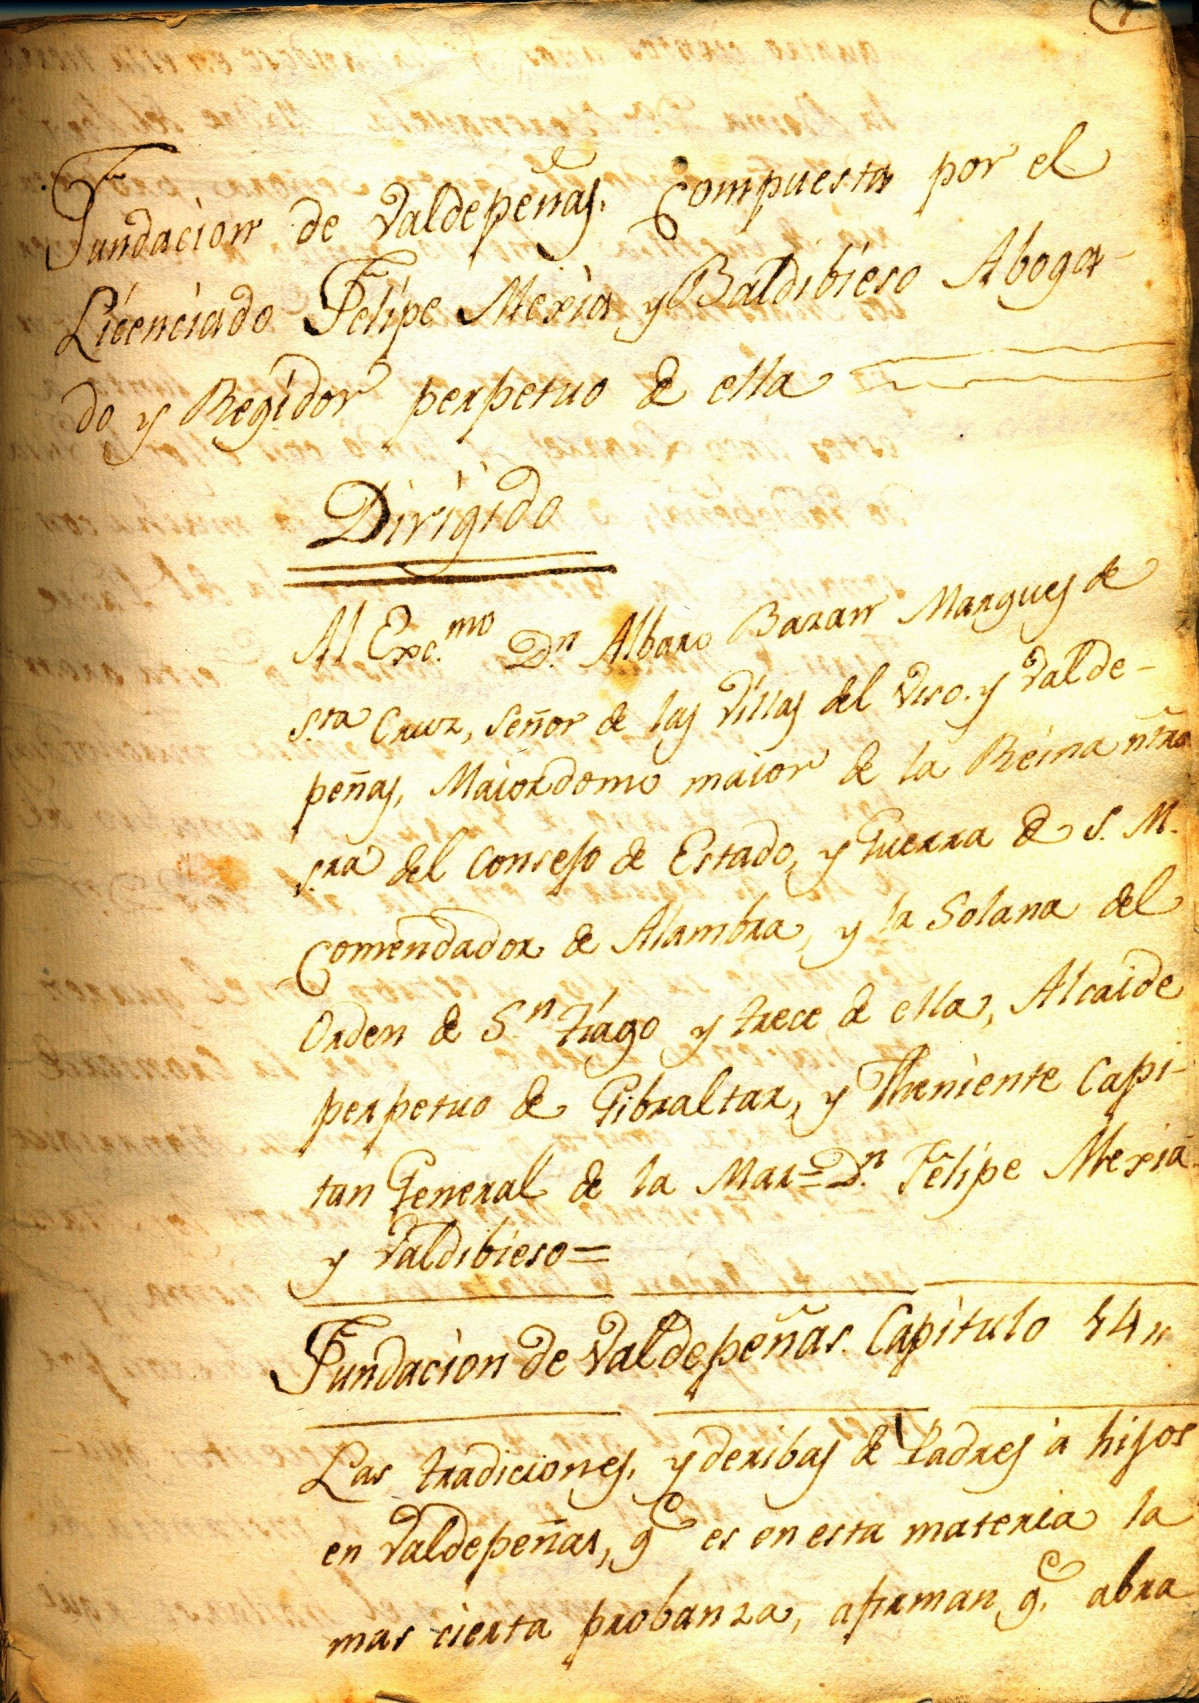 1.
Fundacion de Valdepeñas. Compuesta por el
Licenciado Felipe Mexia y Baldibieso Aboga-
do y Regidor perpetuo de ella
Dirigido
Al Exc.mo D.n Albaro Bazan Marques de
Sta Cruz, Señor de las Villas del Viso. y Valde-
peñas, Maiordomo maior de la Reina ntra
S.ra del Consejo de Estado, y Guerra de S. M.
Comendador de Alambra, y la Solana del
Orden de S.n tiago y trece de ella, Alcaide
perpetuo de Gibraltar, y Theniente Capi-
tan General de la Mar= D.n Felipe Mexia
y Valdibieso=
Fundacion de Valdepeñas. Capitulo 14„
Las tradiciones, y deribas de Padres à hijos
en Valdepeñas, q.e es en esta materia la
mas cierta probanza, afirman q.e abra